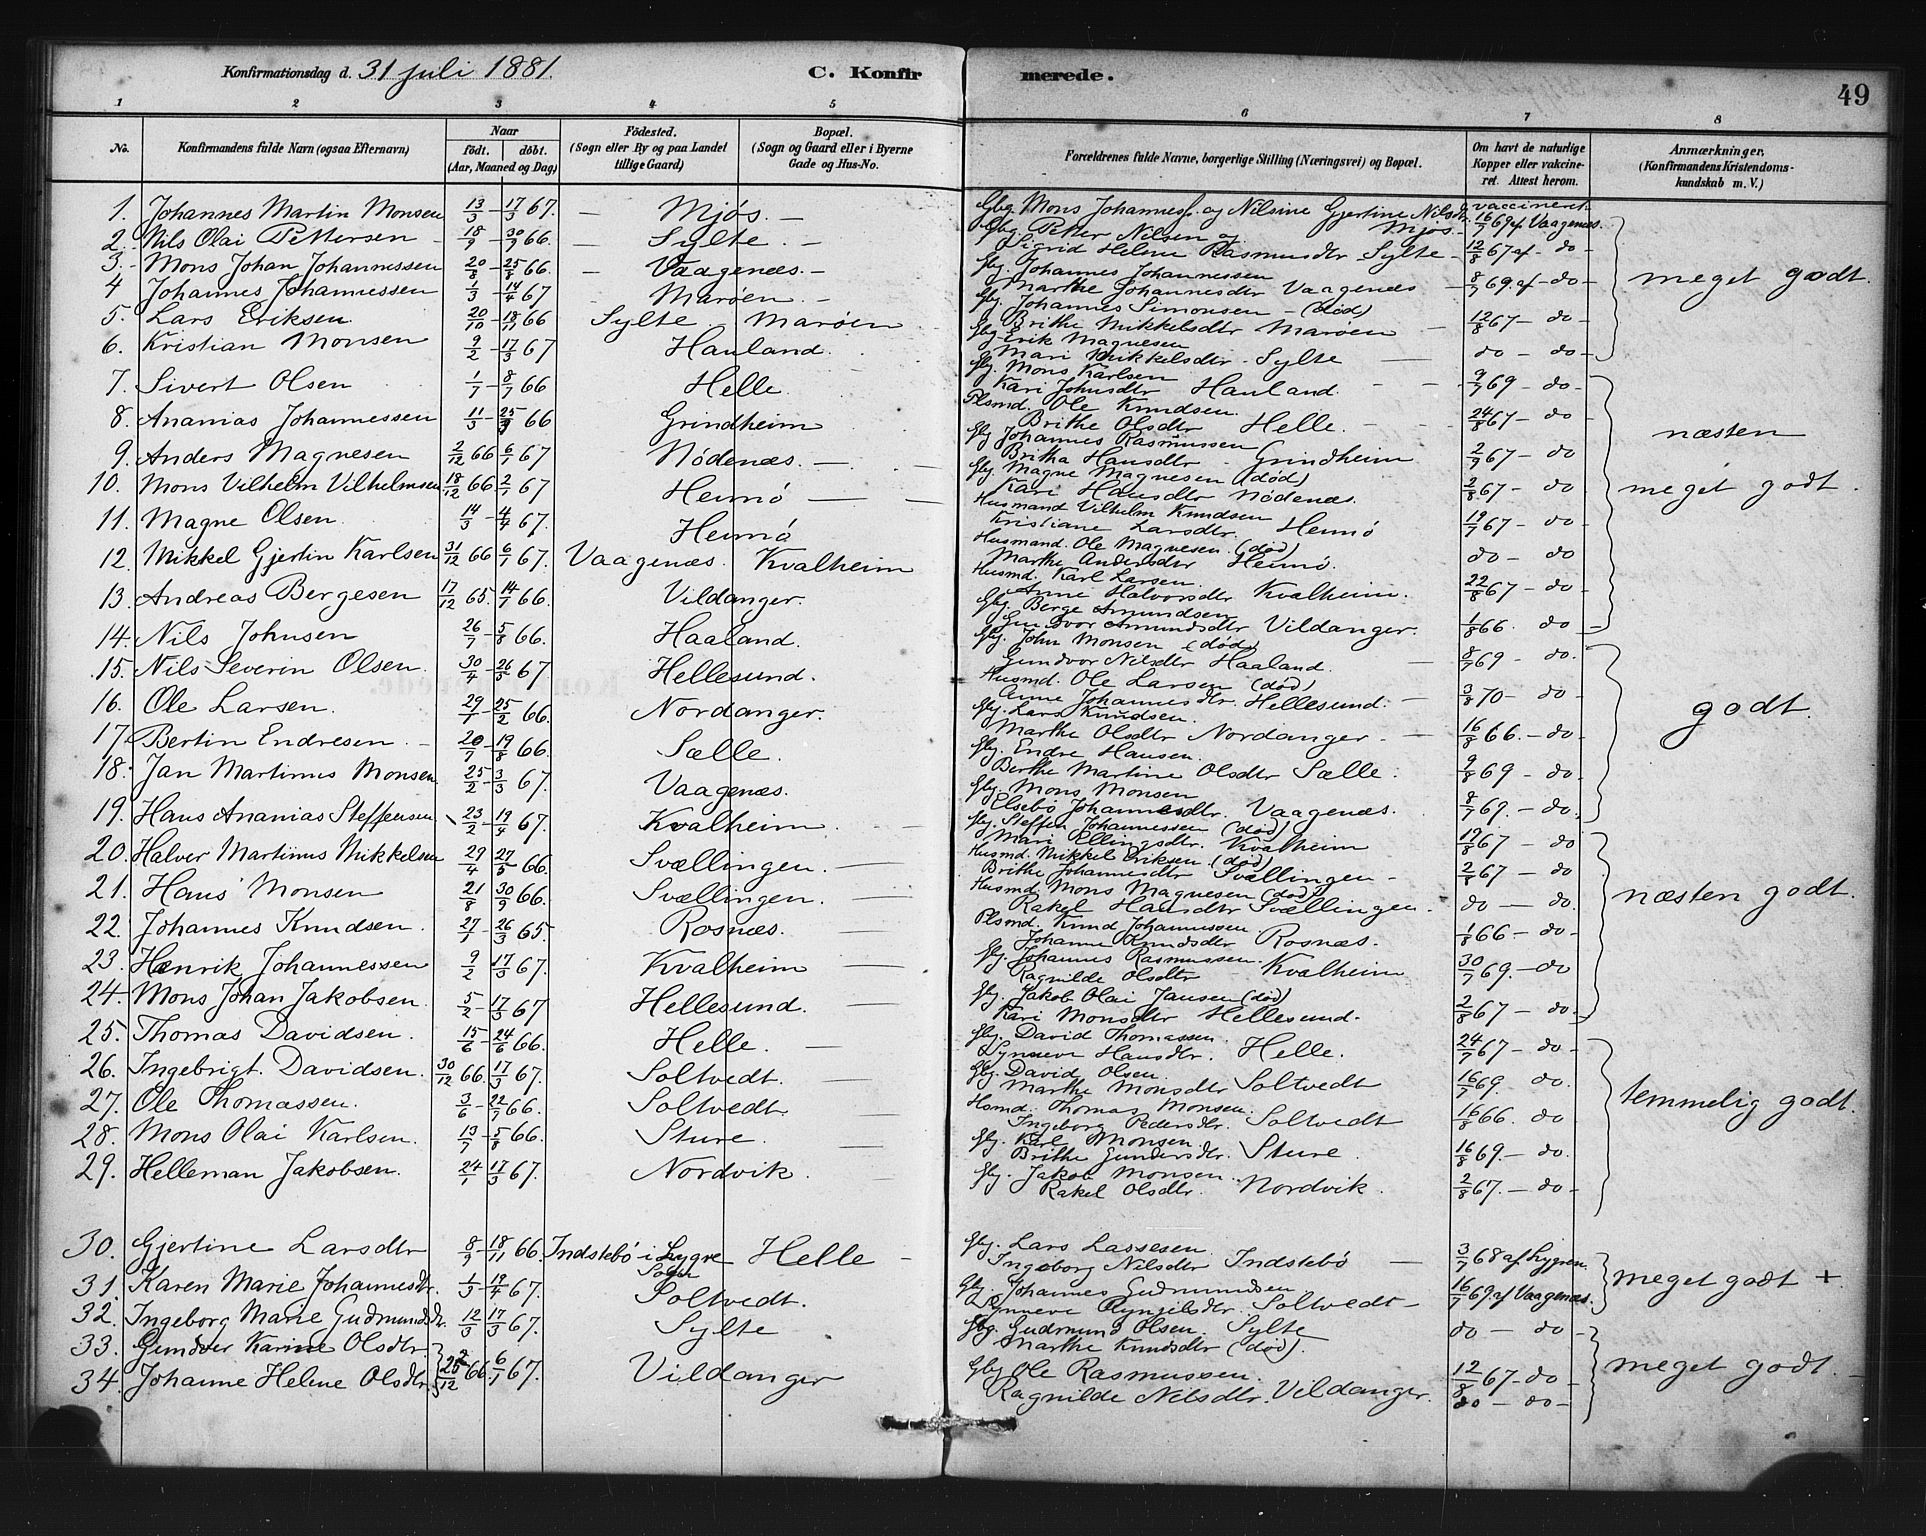 Konfirmationsdag d. 31 juli 1881. C. Konfirmerede. 49
1 2 3 4 5 6 7 8
No. Konfirmandens fulde Navn (ogsaa Efternavn) Naar født. døbt. (Aar, Maaned og Dag) Fødested. (Sogn eller By og paa Landet tillige Gaard) Bopæl. (Sogn og Gaard eller i Byerne Gade og Hus-No. Forældrenes fulde Navne, borgerlige Stilling (Næringsvei) og Bopæl. Om havt de naturlige Kopper eller vakcineret. Attest herom. Anmærkninger, (Konfirmandens Kristendomskundskab m. V.)
1. Johannes Martin Monsen 13/3 - 17/3 67. - Mjøs. - Gbg. Mons Johannesf. og Nilsine Gjertine Nilsdtr. Mjøs - vaccineret 16/7 69 af Vaagenæs.
2. Nils Olai Pettersen 18/9 - 30/9 66. - Sylte. - Gbg. Petter Nilsen og Sigrid Helene Rasmusdtr Sylte - 12/8 67 af - do -
3. Mons Johan Johannessen 20/8 - 25/8 66. - Vaagenæs. - Gbg. Johannes Johannessen Marthe Johannesdtr Vaagenæs - 8/7 69 af - do - meget godt.
4 Johannes Johannessen 1/3 - 14/4 67 - Marøen. - Gbg. Johannes Simonsen - (død) Brithe Mikkelsdtr Marøen - 12/8 67 - do -
5. Lars Eriksen 20/10 - 18/11 66 Sylte Marøen Gbg. Erik Magnesen Mari Mikkelsdtr - Sylte - do - do -
6. Kristian Monsen 9/2 - 17/3 67 Hauland. Gbg. Mons Karlsen Kari Johnsdtr Hauland. 9/7 69 - do -
7. Sivert Olsen 1/7 - 8/7 66 Helle. Plsmd. Ole Knudsen. Brithe Olsdtr Helle. 24/8 67 - do
8. Ananias Johannessen 11/3 - 25/3 66 Grindheim Gbg Johannes Rasmussen Britha Hansdtr - Grindheim 2/9 67 - do næsten
9. Anders Magnesen 2/12 66 6/1 67 Nödenæs. - Gbg. Magne Magnesen (død) Kari Hansdtr Nödenæs. 2/8 67 - do meget godt.
10. Mons Vilhelm Vilhelmsen 18/12 66 2/1 67 Hennö - Husmand Vilhelm Knudsen Kristiane Larsdtr. Hennö 19/7 67 - do
11. Magne Olsen 14/3 - 4/4 67. Hennö Husmand. Ole Magnesen. (død) Marthe Andersdtr Hennö. do - do
12. Mikkel Gjertin Karlsen 31/12 66 6/1 67. Vaagenæs. Kvalheim Husmd. Karl Larsen. Anne Halvorsdtr Kvalheim. 22/8 67 - do
13. Andreas Bergesen 17/12 65. 14/1 66. Vildanger. Gbg. Berge Amundsen Amundsdtr Vildanger. 1/8 66. do -
14. Nils Johnsen 26/7 - 5/8 66. Haaland. Gbg. John Monsen (død) Gundvor Nilsdtr Haaland. 8/7 69 - do.
15. Nils Severin Olsen. 30/4 - 26/5 67. Hellesund. Husmd. Ole Larsen (død) Anne Johannesdtr. Hellesund. - 3/8 70 - do -
16. Ole Larsen. 29/1 - 25/2 66. Nordanger. Gbg. Lars Knudsen. Marthe Olsdtr Nordanger - 16/8 66. - do - godt.
17. Bertin Endresen. 20/7 - 19/8 66. Sælle. Gbg. Endre Hansen. Berthe Martine Olsdtr Sælle. 9/8 69 - do -
18. Jan Martinus Monsen 25/2 - 3/3 67. Vaagenæs. Gbg. Mons Monsen Elsebö Johannesdtr. Vaagenæs. 8/7 69. - do -
19. Hans Ananias Steffensen 23/2 - 19/4 67. Kvalheim. Gbg. Steffen Johannessen (død) Mari Ellingsdtr. Kvalheim 19/8 67 - do
20. Halver Martinus Mikkelsen 29/4 - 27/5 66. Svællingen. - Husmd. Mikkel Eriksen (død) Brithe Johannesdtr Svællingen - 2/8 67 - do
21. Hans Monsen 21/8 30/9 66. Svællingen. - Husmd Mons Magnesen (død) Rakel Hansdtr Svællingen. do - do. næsten godt.
22. Johannes Knudsen. 27/1 - 26/3 65. Rosnæs. - Plsmd. Knud Johannessen Johanne Knudsdtr Rosnæs. 1/8 66 - do -
23. Henrik Johannessen 9/2 17/3 67. Kvalheim - Gbg. Johannes Rasmussen. Ragnilde Olsdtr Kvalheim 30/7 69. - do
24. Mons Johan Jakobsen. 5/2 - 17/3 67 Hellesund. - Gbg. Jakob Olai Jansen (død) Kari Monsdtr Hellesund. 2/8 67 - do -
25. Thomas Davidsen. 15/6 - 24/6 66. Helle. - Gbg. David Thomassen. Synneve Hansdtr. Helle. 24/7 67 - do -
26. Ingebrigt. Davidsen. 30/12 66. 17/3 67. Soltvedt. - Gbg. David Olsen. Marthe Monsdtr Soltvedt 16/7 69. do.
27. Ole Thomassen. 3/6 - 22/7 66. Soltvedt. Hsmd. Thomas Monsen. Ingeborg Pedersdtr. Soltvedt 16/8 66. do temmelig godt.
28. Mons Olai Karlsen. 13/7 - 5/8 66. Sture. - Gbg. Karl Monsen. Brithe Gundersdtr. Sture. 16/8 69. - do.
29. Helleman Jakobsen. 24/1 17/3 67. Nordvik. - Gbg. Jakob Monsen. Rakel Olsdtr. Nordvik. 2/8 67. - do -
30. Gjertine Larsdtr 8/9 - 18/11 66. Indstebö i Lygre Sogn Helle - Gbg. Lars Lassesen. Ingeborg Nilsdtr Indstebö - 3/7 68 af Lygren.
31. Karen Marie Johannesdtr. 1/3 - 19/4 67. Soltvedt. Gbg. Johannes Gudmundsen Synneve Soltvedt - 16/7 69 af Vaagenæs. meget godt +
32. Ingeborg Marie Gudmundsdtr. 12/3 17/3 67. Sylte Gbg. Gudmund Olsen. Sylte Marthe Knudsdtr (død). do - do -
33. Gundver Karine Olsdtr.
34. Johanne Helene Olsdtr. 66. 6/1 67. Vildanger Gbg Ole Rasmussen. Ragnilde Nilsdtr. Vildanger. 12/8 67 - do - do - do - meget godt.